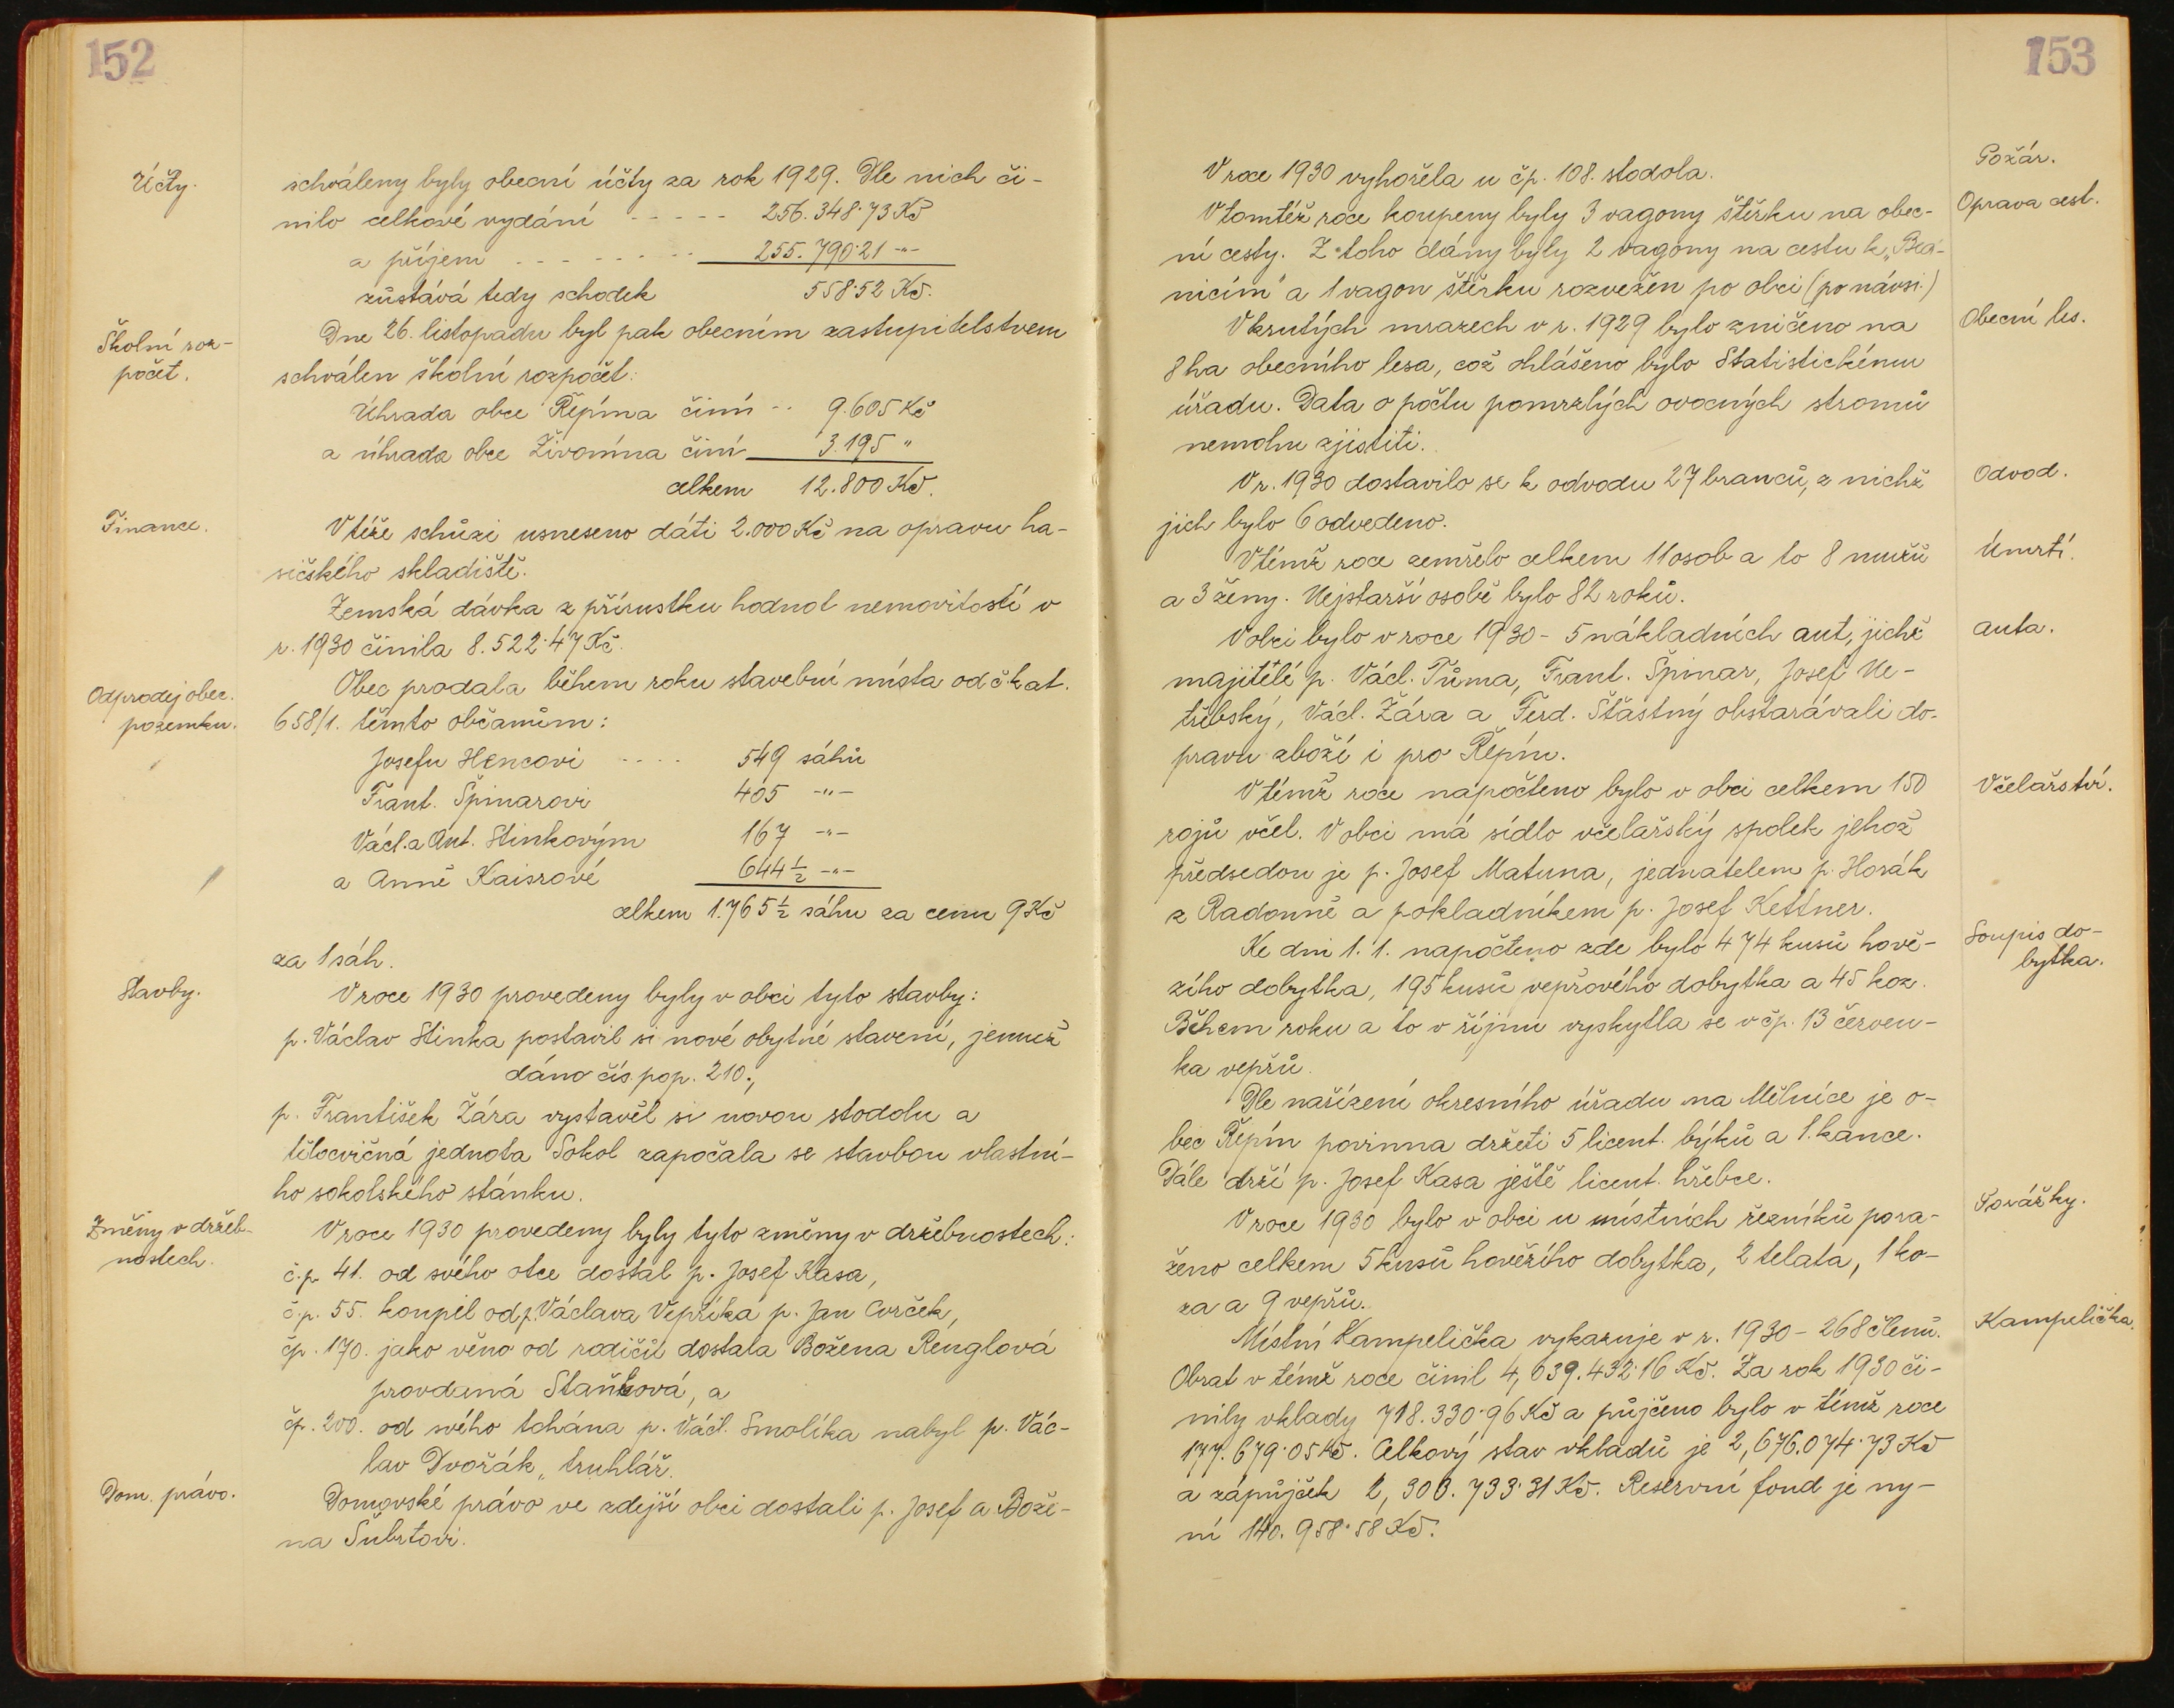 152
Účty.
schváleny byly obecní účty za rok 1929. Dle nich či-
nilo celkové vydání ----- 256.348·73 Kč
a příjem -------- 255.790·21 -"-
zůstává tedy schodek 558·52 Kč.
Školní roz-
počet.
Dne 26. listopadu byl pak obecním zastupitelstvem
schválen školní rozpočet:
Úhrada obce Řepína činí -- 9.605 Kč
a úhrada obce Živonína činí 3.195 "
celkem 12.800 Kč.
Finance.
V téže schůzi usneseno dáti 2.000 Kč na opravu ha-
sičského skladiště.
Zemská dávka z přírustku hodnot nemovitostí v
r. 1930 činila 8.522·47 Kč.
Odprodej obec.
pozemku.
Obec prodala během roku stavební místa od č. kat.
658/1. těmto občanům:
Josefu Hencovi ---- 549 sáhů
Frant. Špinarovi 405 -"-
Václ. a Ant. Stinkovým 167 -"-
a Anně Kaisrové 644 1/2 -"-
celkem 1.765 1/2 sáhu za cenu 9 Kč
za 1 sáh.
Stavby.
V roce 1930 provedeny byly v obci tyto stavby:
p. Václav Stinka postavil si nové obytné stavení, jemuž
dáno čís. pop. 210.,
p. František Žára vystavěl si novou stodolu a
tělocvičná jednota Sokol započala se stavbou vlastní-
ho sokolského stánku.
Změny v držeb-
nostech.
V roce 1930 provedeny byly tyto změny v držebnostech:
č.p. 41. od svého otce dostal p. Josef Kasa,
č.p. 55. koupil od p. Václava Vepříka p. Jan Cvrček,
čp. 170. jako věno od rodičů dostala Božena Renglová
provdaná Staňková, a
čp. 200. od svého tchána p. Václ. Smolíka nabyl p. Vác-
lav Dvořák, truhlář.
Dom. právo.
Domovské právo ve zdejší obci dostali p. Josef a Bože-
na Šubrtovi.
153
Požár.
V roce 1930 vyhořela u čp. 108. stodola.
Oprava cest.
V tomtéž roce koupeny byly 3 vagony štěrku na obec-
ní cesty. Z toho dány byly 2 vagony na cestu k
nicím" a 1 vagon štěrku rozvežen po obci (po návsi.)
Obecní les.
V krutých mrazech v r. 1929 bylo zničeno na
8 ha obecního lesa, což ohlášeno bylo Statistickému
úřadu. Data o počtu pomrzlých ovocných stromů
nemohu zjistiti.
Odvod.
V r. 1930 dostavilo se k odvodu 27 branců, z nichž
jich bylo 6 odvedeno.
Úmrtí.
V témž roce zemřelo celkem 11 osob a to 8 mužů
a 3 ženy. Nejstarší osobě bylo 82 roků.
Auta.
V obci bylo v roce 1930 - 5 nákladních aut, jichž
majitelé p. Václ. Tůma, Frant. Špinar, Josef Ne-
třebský, Václ. Žára a Ferd. Šťastný obstarávali do-
pravu zboží i pro Řepín.
Včelařství.
V témž roce napočteno bylo v obci celkem 150
rojů včel. V obci má sídlo včelařský spolek jehož
předsedou je p. Josef Matuna, jednatelem p. Horák
z Radouně a pokladníkem p. Josef Kettner.
Soupis do-
bytka.
Ke dni 1. 1. napočteno zde bylo 474 kusů hově-
zího dobytka, 195 kusů vepřového dobytka a 45 koz.
Během roku a to v říjnu vyskytla se v čp. 13 červen-
ka vepřů.
Dle nařízení okresního úřadu na Mělníce je o-
bec Řepín povinna držeti 5 licent. býků a 1. kance.
Dále drží p. Josef Kasa ještě licent. hřebce.
Porážky.
V roce 1930 bylo v obci u místních řezníků pora-
ženo celkem 5 kusů hovězího dobytka, 2 telata, 1 ko-
za a 9 vepřů.
Kampelička.
Místní Kampelička vykazuje v r. 1930 - 268 členů.
Obrat v témž roce činil 4,639.432·16 Kč. Za rok 1930 či-
nily vklady 718.330·96 Kč a půjčeno bylo v témž roce
177.679·05 Kč. Celkový stav vkladů je 2,676.074·73 Kč
a zápůjček 2,300.733·31 Kč. Reservní fond je ny-
ní 140.958·58 Kč.